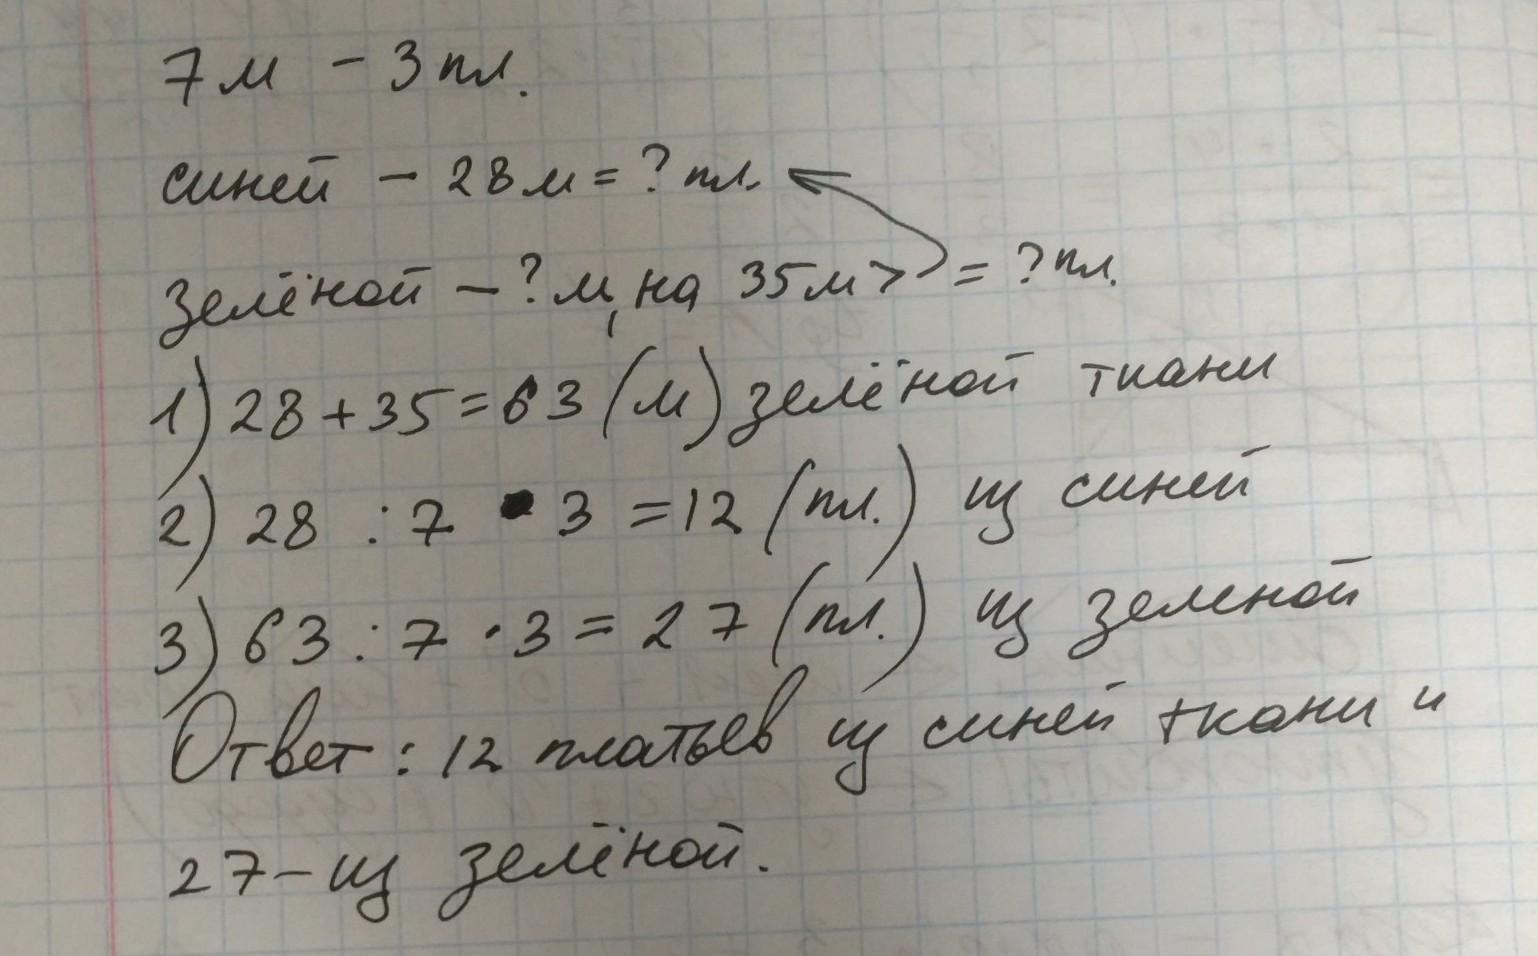 7м - 3 пл.
синей - 28м = ? пл.
зелёной - ? м, на 35м > = ? пл.
1) 28 + 35 = 63 (м) зелёной ткани
2) 28 : 7 · 3 = 12 (пл.) из синей
3) 63 : 7 · 3 = 27 (пл.) из зеленой
Ответ: 12 платьев из синей ткани и
27 - из зелёной.